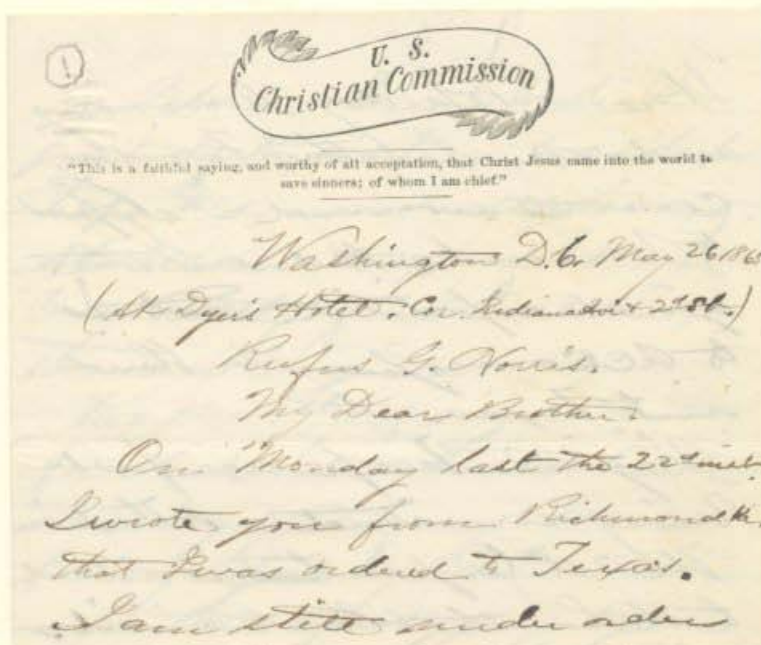 1
U. S.
Christian Commission
"This is a faithful saying, and worthy of all acceptation, that Christ Jesus came into the world to
save sinners; of whom I am chief."
Washington D.C. May 26 186
(At Dyer's Hotel. Cor. Indiana Av & 2d St.)
Rufus G. Norris.
My Dear Brother.
On Monday last the 22d inst.
I wrote you from Richmond
that I was ordered to Texas.
I am still under order